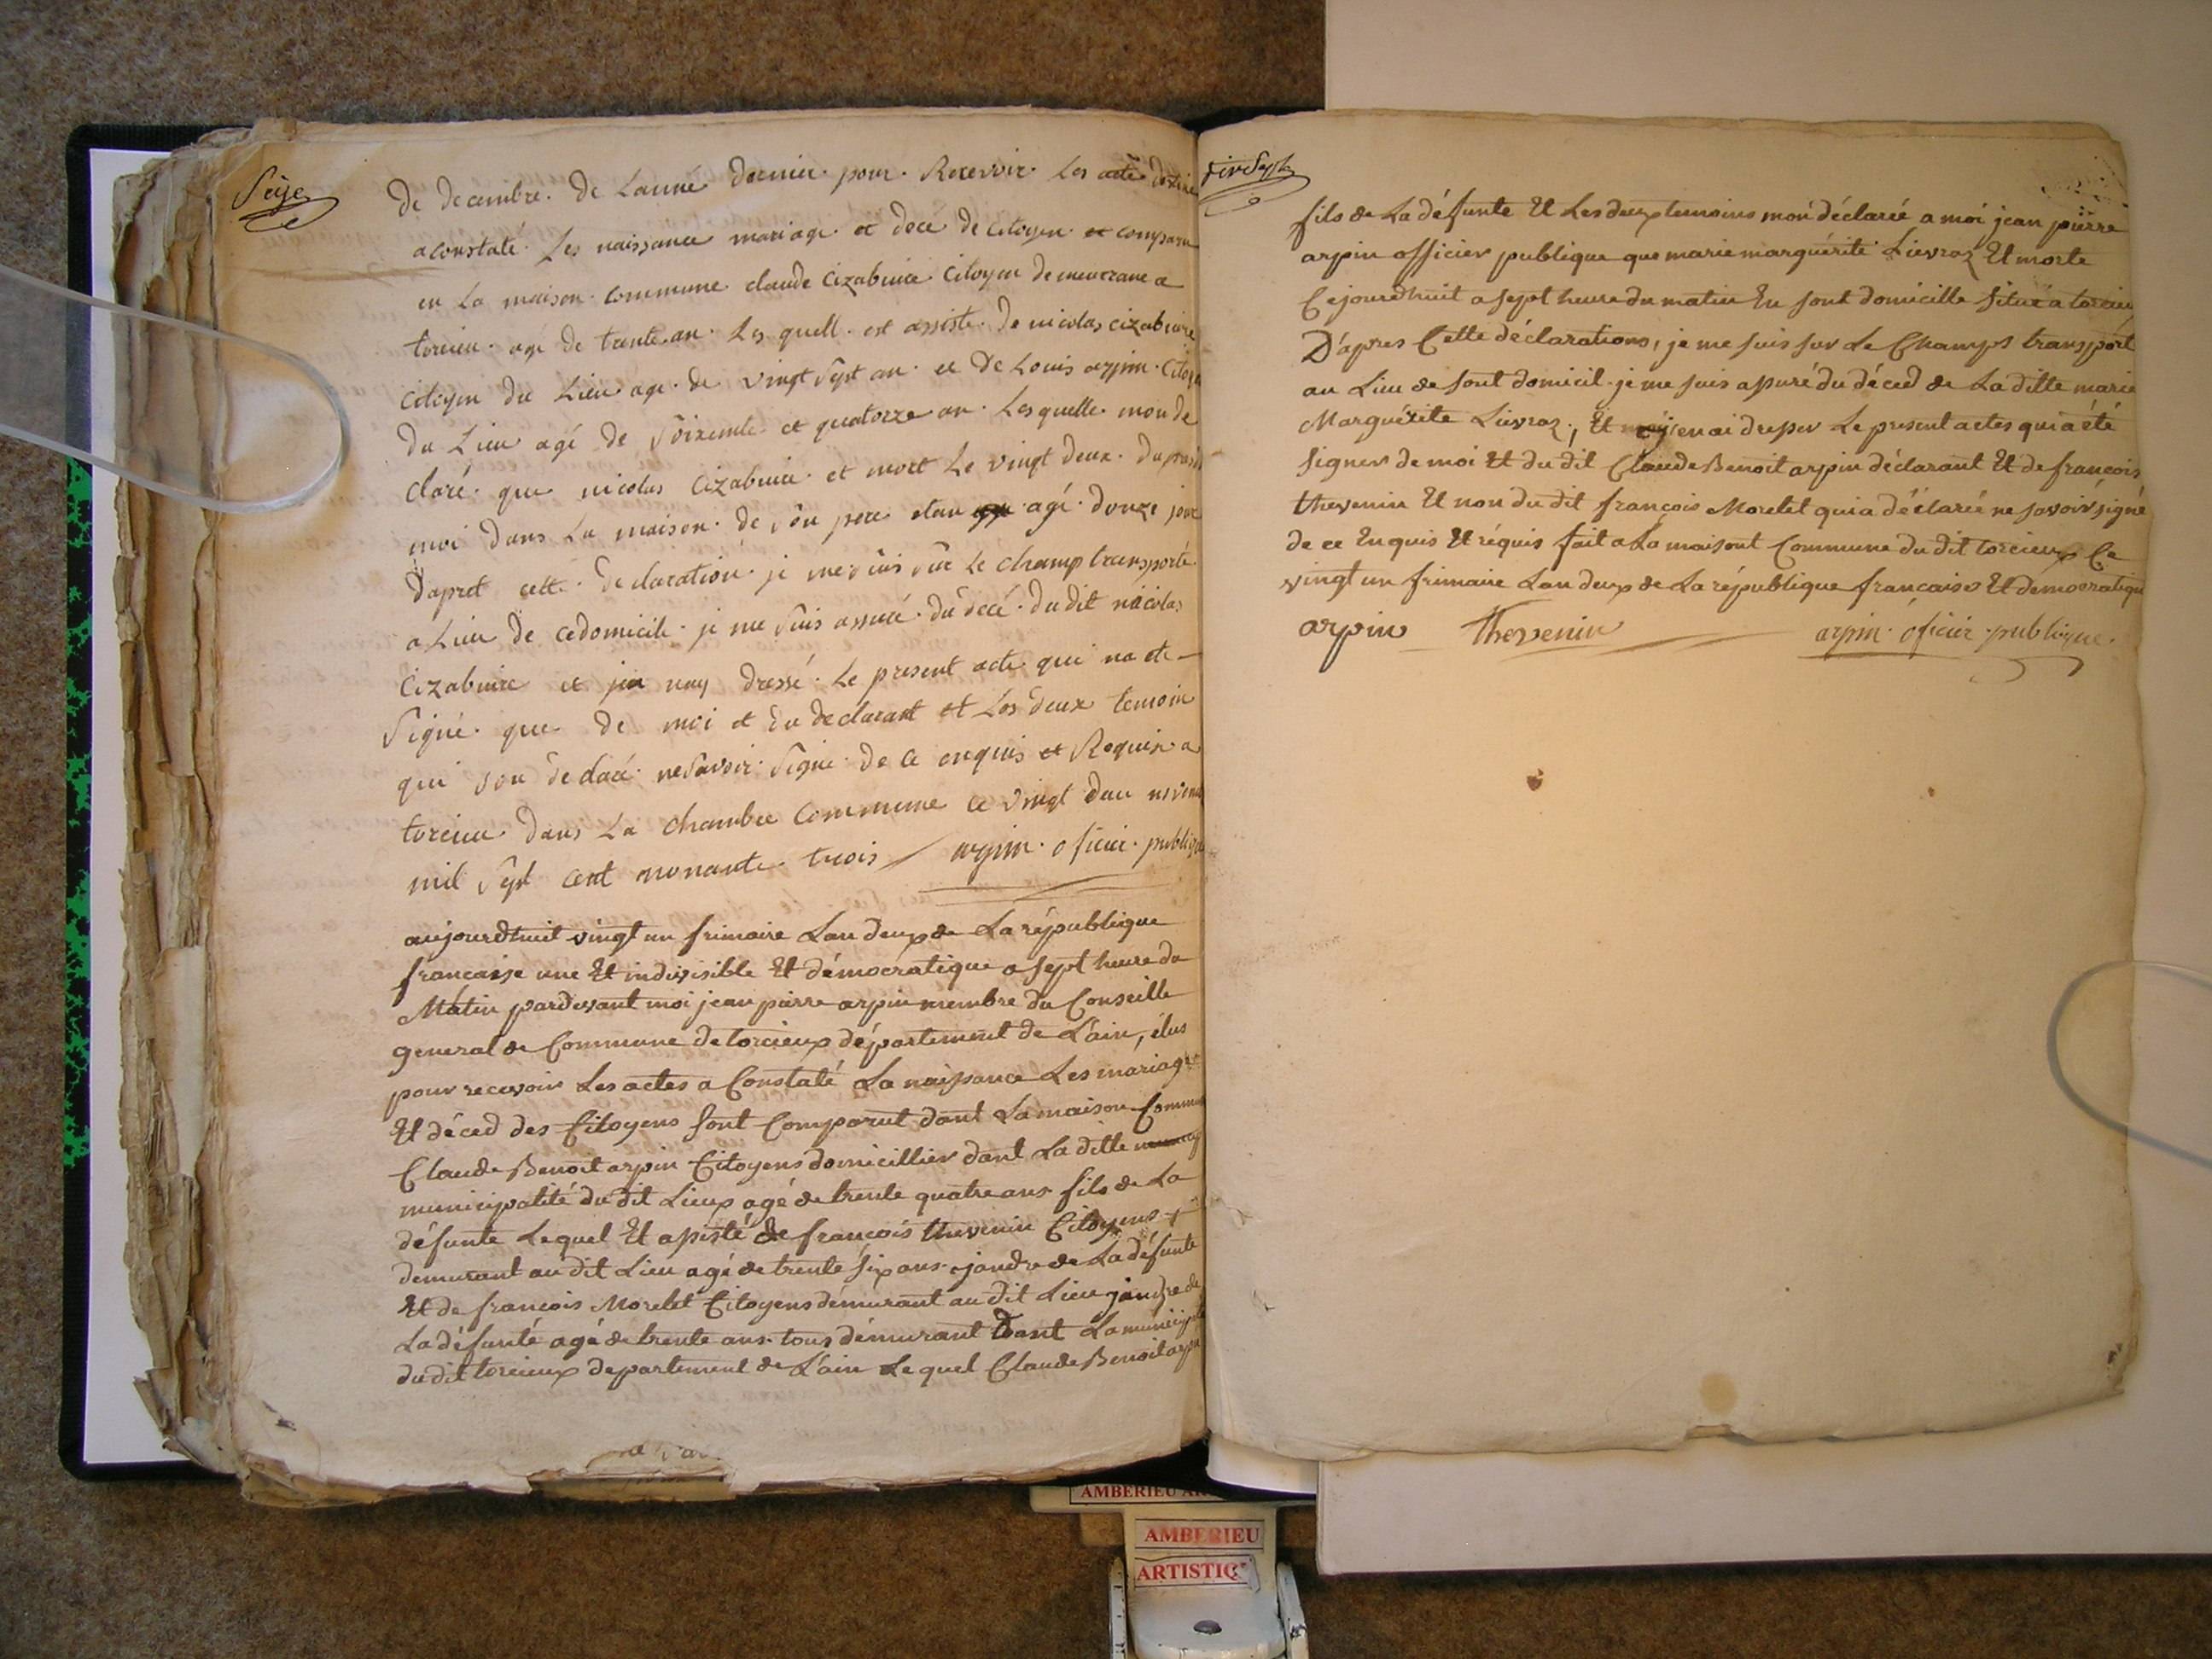 Seize
de decembre. de Lanné dernier. pour. Recevoir. Les acte
a constaté. Les naissance mariage. et décé de citoyen. et comparu
en La maison. commune claude cizabuire. citoyen demeurane a
torcieu. agé de trente. an. Les quell. est assiste. de nicolas cizabuire
citoyen du Lieu age. de vingt sept an. et de Louis arpin. Citoye
du Lieu agé de soixente et quatorze an. Lesquelle. mon de
claré. que nicolas cizabuire. et mort Le vingt deux. du
moi dans La maison. de son pere etan agé. douze jour
dapret cette. declaration. je me suis sur Le champ transporté.
a Lieu de cedomicile. je me suis assuré. du decé. du dit nicolas
Cizabuire et jen nay dressé. Le present acte. qui na ete
Signé. que de moi et du declarant et Les deux temoin
qui son declaré. ne savoir. signé. de ce enquis et Requis. a
torcieu. dans La chambre Commune ce vingt
mil sept cent nonante. trois arpin. oficier. publique
aujourdhuit vingt un frimaire Lan deux de La république
francaise une Et indivisible Et démocratique a sept heure du
Matin pardevant moi jean pierre arpin membre du Conseille
general de Commune de torcieux département de L'ain, élus
pour recevoir Les actes a Constaté La naissance Les mariages
Et déced des Citoyens sont Comparut dant La maison Commun
Claude Benoit arpin Citoyens domicillier dant La ditte
municipalité du dit Lieux agé de trente quatre ans fils de La
défunte Lequel Et assisté de françois thevenin Citoyens
demurant au dit Lieu agé de trente six ans jandre de La défunte
Et de francois Morelet Citoyens démurant au dit Lieu jandre de
La défunte agé de trente ans tous démurant Dant La municipalité
du dit torcieux departement de L'ain Le quel Claude Benoit arpin
dix Sept
fils de La défunte Et Les deux temoins mon déclarié a moi jean pierre
arpin officier publique que marie marguérite Lievraz Et morte
Cejourdhuit a sept heure du matin En sont domicille situé a torcieu
D'apres Cette déclarations, je me suis sur Le Champs transport
au Lieu de sont domicil. je me suis assuré du déced de La ditte marie
Marguérite Lievraz, Et j'en ai dresser Le present actes qui a été
signer de moi Et du dit Claude Benoit arpin déclarant Et de francois
thevenin Et non du dit françois Morelet qui a déclarié ne savoir signé
de ce Enquis Et réquis fait a La maisont Commune du dit torcieux Ce
vingt un frimaire Lan deux de La république francaise Et democratique
arpin Thevenin arpin. oficier. publique.
AMBERIEU
AMBERIEU
ARTISTIQ